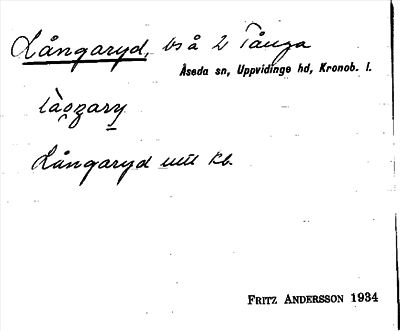 Långaryd, bs å 2 Tånga
Åseda sn, Uppvidinge hd, Kronob. l.
Långaryd utt kb.
FRITZ ANDERSSON 1934